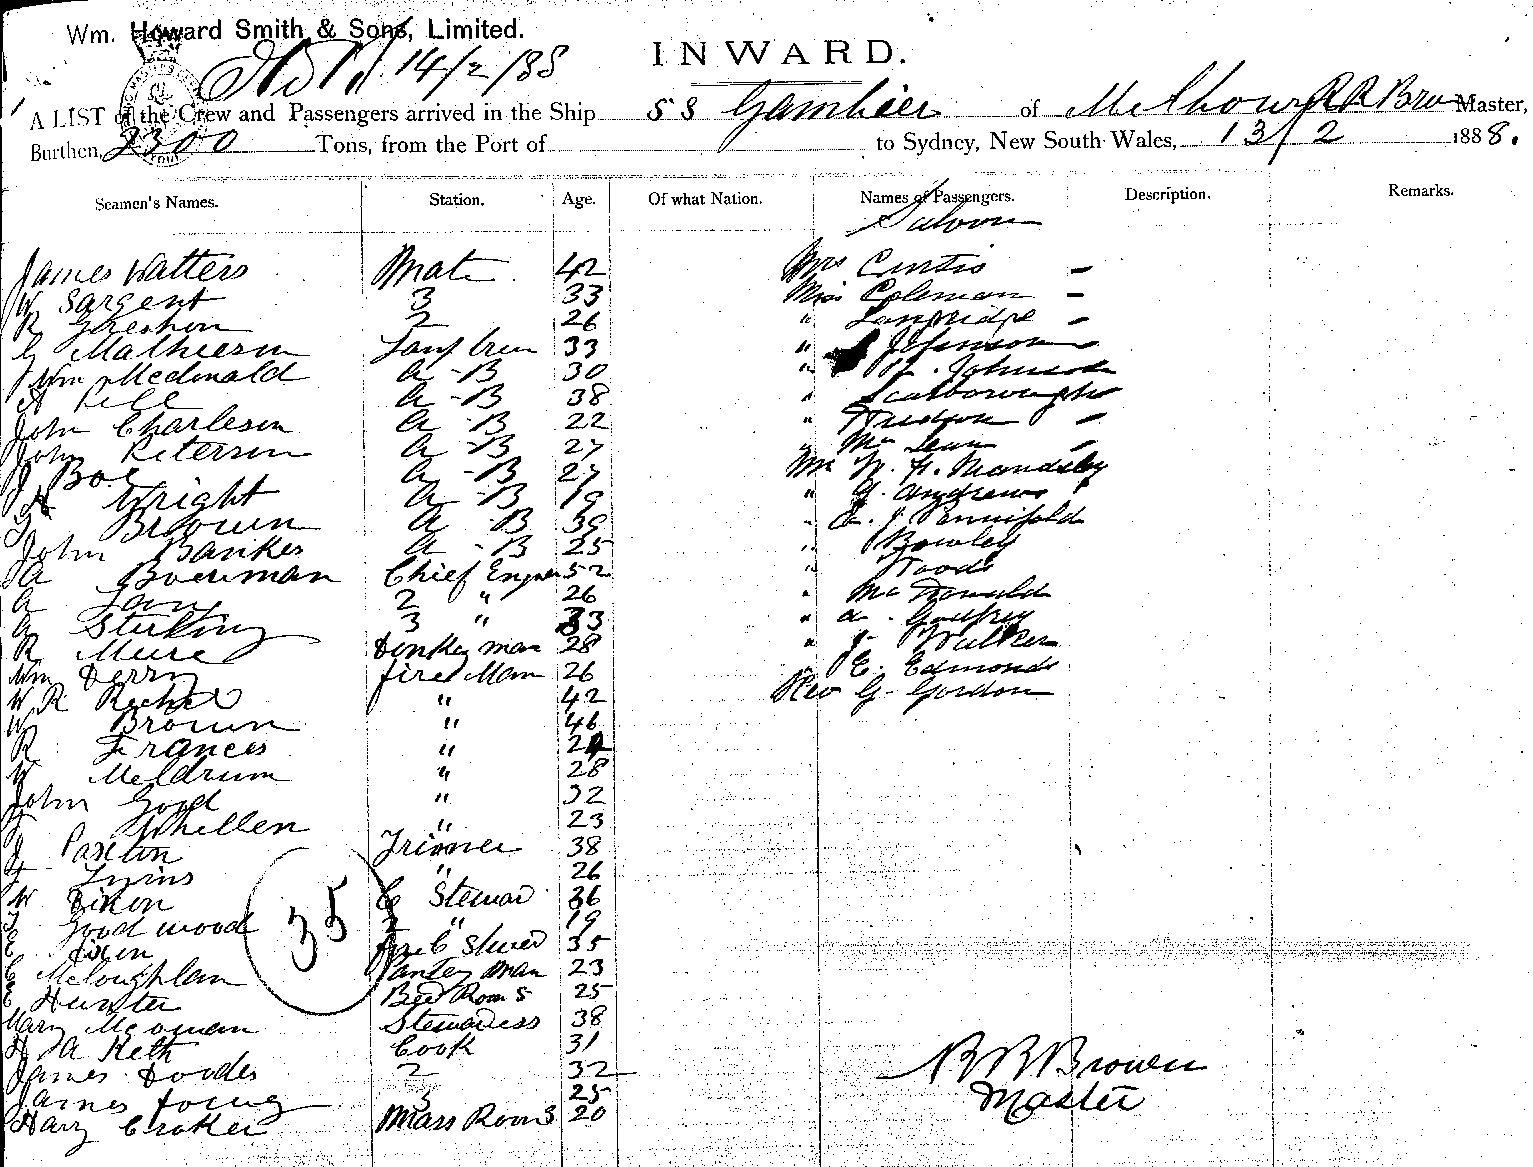 Wm. Howard Smith & Sons, Limited.
14/2/88
INWARD.
A LIST of the Crew and Passengers arrived in the Ship SS Gambier of Melbourne R R Brown Master,
Burthen, 2300 Tons, from the Port of to Sydney, New South Wales, 13/2 1888.
Seamen's Names. Station. Age. Of what Nation. Names of Passengers. Description. Remarks.
Saloon
James Watters Mate 42 Mrs Curtis -
W Sargent 3 33 Miss Coleman -
R Greshon 2 26 " Langridge -
G Mathieson Lamp trim 33 " Johnson
Wm Mcdonald A-B 30 " H. Johnson
A-B 38 " Scarborough
John Charleson A-B 22 " Hudson -
John Peterson A-B 27 " McLean -
J Boe A-B 27 Mr Maudsley
H Wright A-B 19 " G. Andrews
Brown A-B 39 " E. J. Pennifold
John Bankes A-B 25 " Bowley
A Boverman Chief Engner 52 " Woods
A 2 " 26 " McDonald
A Sterling 3 " 33 " A. Godfrey
R Muire Donkey man 28 " J. Walker
Wm Derry fire Man 26 " E. Edmonds
W R " 42 Rev G. Gordon
W Brown " 46
R Frances " 24
W Meldrum " 28
John Good " 32
Whellen " 23
J Paxton Trimmer 38
" 26
W Dixon C Steward 36
Goodwood 2 " 19
Dixon Fore C Stewed 35
McLoughlan Pantry man 23
Hunter Bed Room S 25
Mary McGowan Stewardess 38
H A Keth Cook 31
James Doodes 2 32
James Young 3 25
Harry Croker Mass Room S 20
35
R R Brown
Master